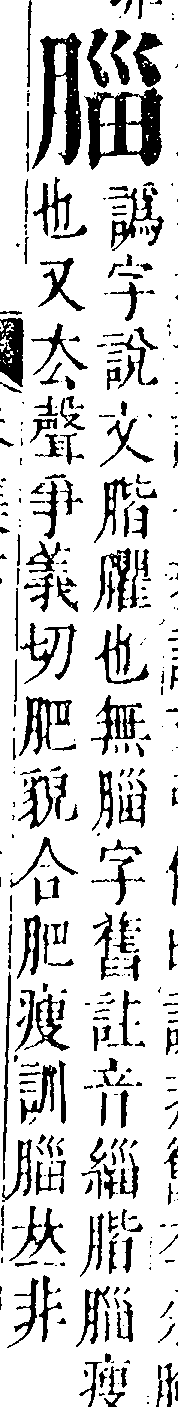 䐉
譌字說文䐔臞也無䐉字舊註音緇䐔䐉瘦
也又去聲爭義切肥貌合肥瘦訓䐉𠀤非